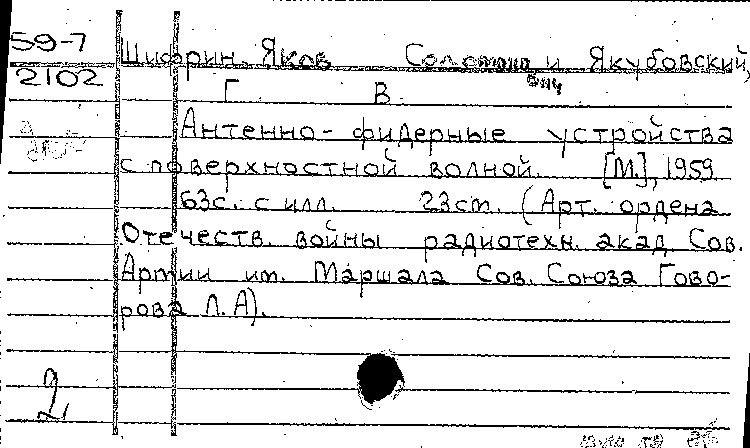 59-7
2102
Шифрин, Яков Соломонович и Якубовский,
Г. В.
Антенно-фидерные устройства
с поверхностной волной. [М.], 1959
63с. с илл. 23см. (Арт. ордена
Отечеств. войны радиотехн. акад. Сов.
Армии им. Маршала Сов. Союза Гово-
рова Л.А).
2